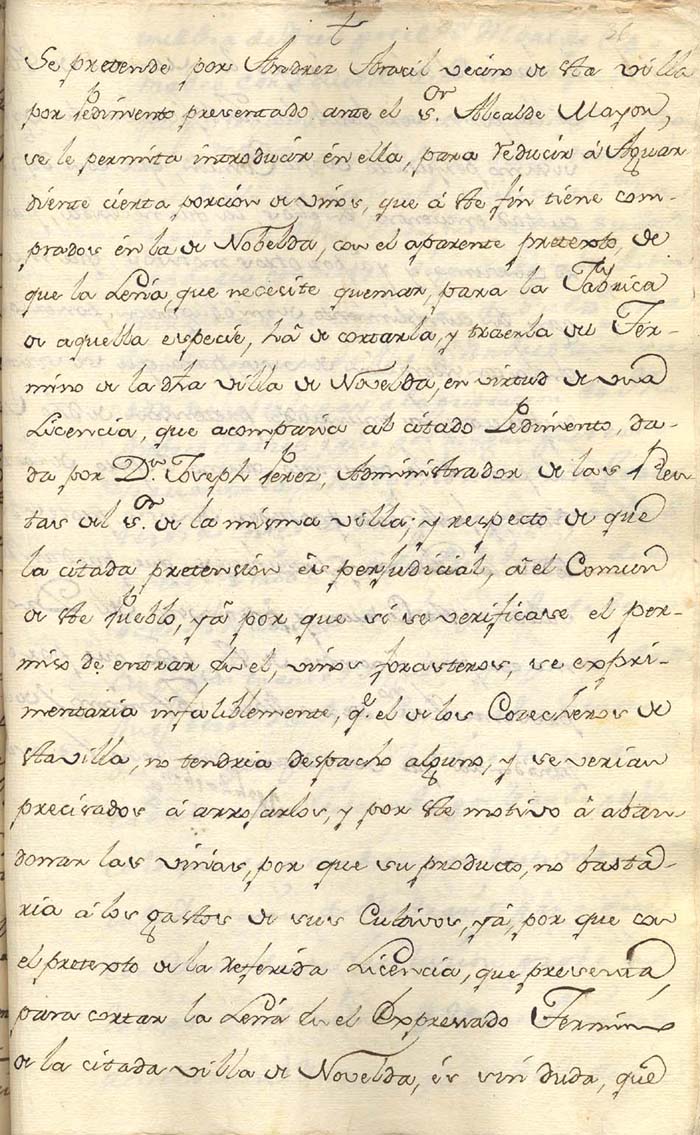 Se pretende por Andrez Aracil vecino de Sta villa
por Pedimento presentado ante el Sor. Alcalde Mayor,
se le permita introducir én ella, para reducir á Aguar
diente cierta porción de vinos, que á Ste fin tiene com-
prados én la de Nobelda, con el aparente pretexto, de
que la Leña, que necesite quemar, para la Fabrica
de aquella especie, há de cortarla, y traerla del Ter-
mino de la dha villa de Novelda, en virtud de una
Licencia, que acompaña al citado Pedimento, da-
da por Dn. Joseph Perez, Administrador de las Ren
tas del Sor. de la misma villa; y respecto de que
la citada pretensión és perjudicial, á el Comun
de Ste Pueblo, yá por que si se verificase el per-
miso de entrar en el, vinos forasteros, se expri-
mentaria infaliblemente, qe. el de los Cosecheros de
Sta villa, no tendria despacho alguno, y se verian
precisados á arrojarlos, y por Ste motivo á aban
donar las viñas, por que su producto, no basta-
ria á los gastos de sus Cultivos, yá, por que con
el pretexto de la referida Licencia, que presenta,
para cortar la Leña en el Expressado Termino
de la citada villa de Novelda, és sin duda, que